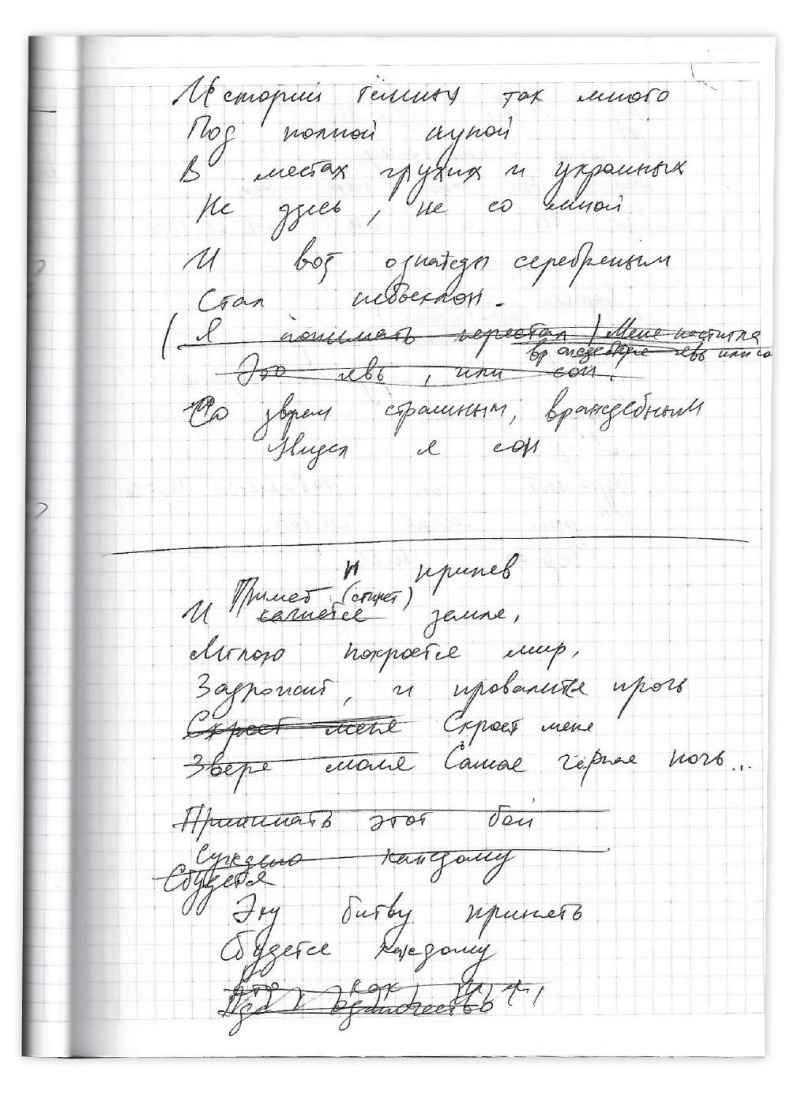 Историй тёмных так много
Под полной луной
В местах глухих и укромных
Не здесь, не со мной
И вот однажды серебреным
Стал небосклон.
(Я понимать перестал / Меня настигла
враждебное явь или со
Это явь, или сон.
Со зверем страшным, враждебным
Увидел я сон
припев
Примет (стирет)
И качнется земля,
Мглою покроется мир,
Задрожит, и провалится прочь
Скроет меня Скроет меня
Зверя Самая чёрная ночь...
Принимать этот бой
Суждено каждому
Сбудется
Эту битву принять
Сбудется каждому
это как
одиночество